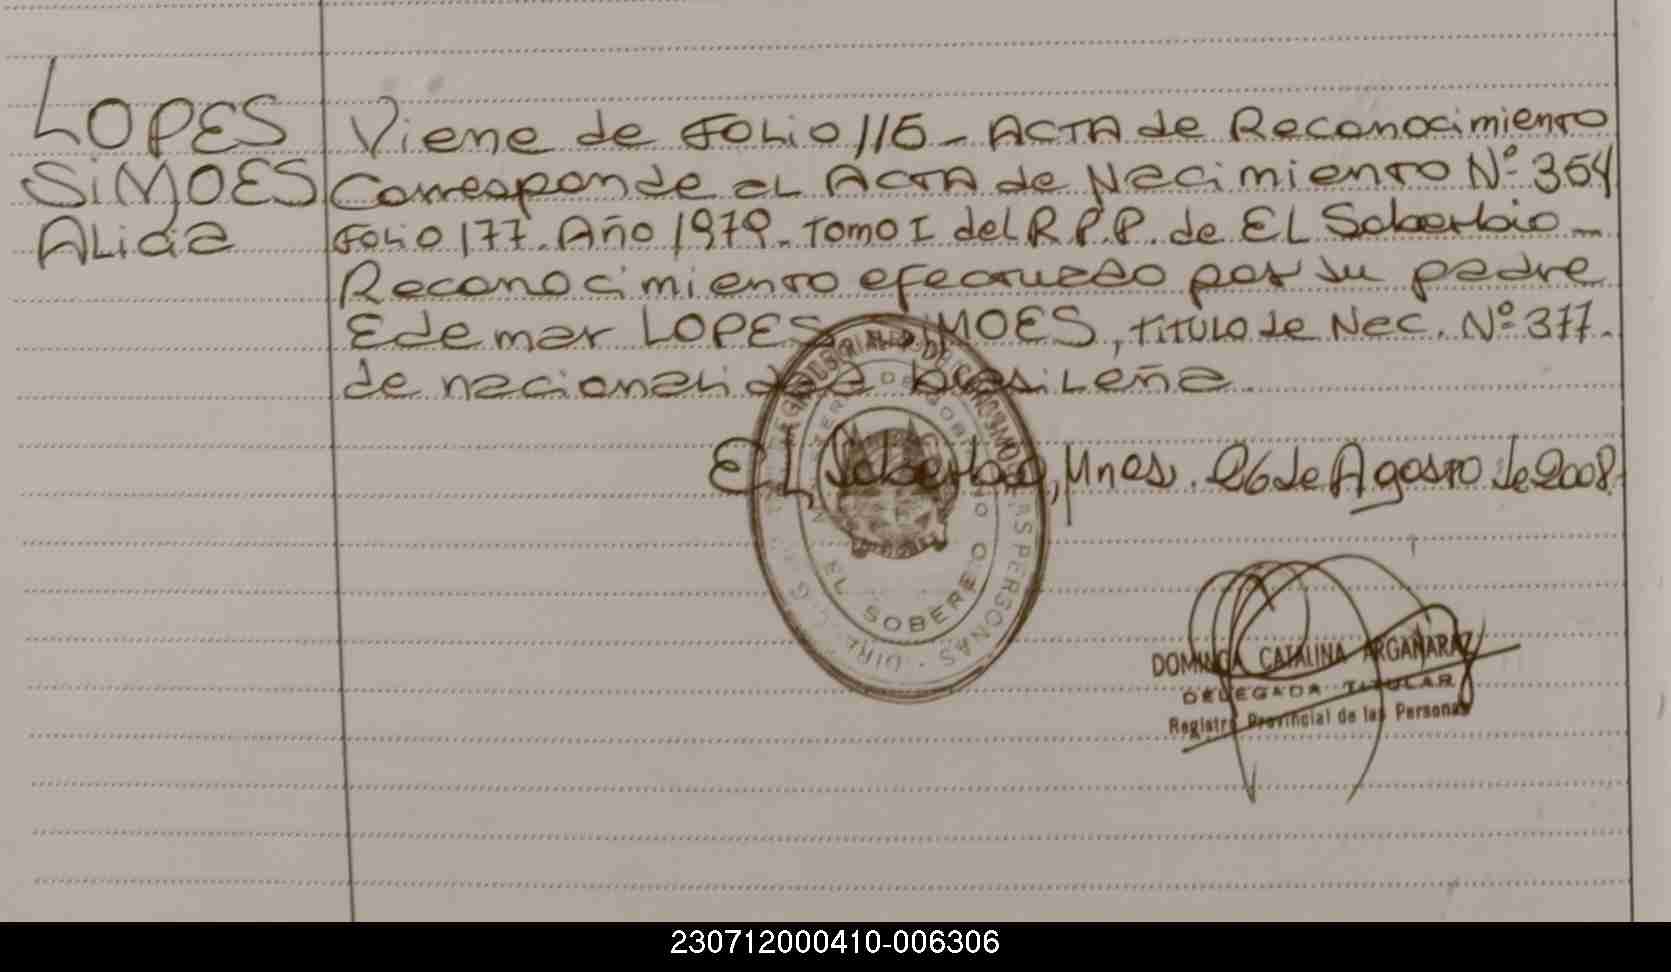 LOPES
SiMOES
ALicia
Viene de FOLiO 115 - ACTA de Reconocimiento
Corresponde al ACTA de Nacimiento Nº 354
FOLiO 177. Año 1979. TOMO I del R.P.P. de EL Soberbio -
Reconocimiento efectuado por su padre
Edemar LOPES SiMOES, TITULO de Nac. Nº 377.
de nacionalidad brasileña
EL Soberbio, Mnes. 26 de Agosto de 2008.
EL SOBERBIO
DOMINGA CATALINA ARGAÑARAZ
DELEGADA TITULAR
Registro Provincial de las Personas
230712000410-006306